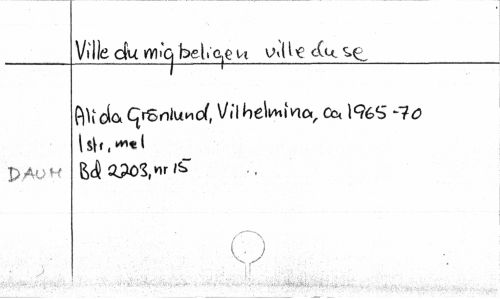 Ville du mig beligen ville du se
Alida Grönlund, Vilhelmina, ca 1965-70
1 str, mel
DAUM Bd 2203, nr 15